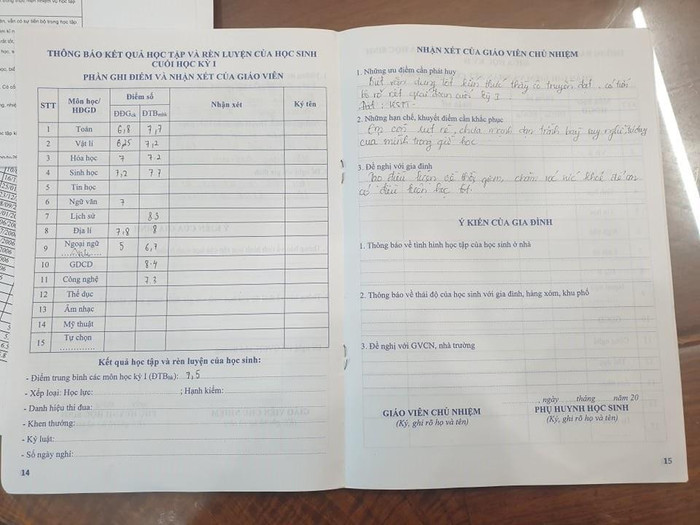 THÔNG BÁO KẾT QUẢ HỌC TẬP VÀ RÈN LUYỆN CỦA HỌC SINH
CUỐI HỌC KỲ I
PHẦN GHI ĐIỂM VÀ NHẬN XÉT CỦA GIÁO VIÊN
STT Môn học/ HĐGD Điểm số Nhận xét Ký tên
ĐĐGck ĐTBmhk
1 Toán 6,8 7,7
2 Vật lí 6,25 7,2
3 Hóa học 7 7.2
4 Sinh học 7,2 7.7
5 Tin học
6 Ngữ văn 7
7 Lịch sử 8.3
8 Địa lí 7,8 8
9 Ngoại ngữ 5 6,7
10 GDCD 8.4
11 Công nghệ
12 Thể dục
13 Âm nhạc
14 Mỹ thuật
15 Tự chọn
Kết quả học tập và rèn luyện của học sinh:
- Điểm trung bình các môn học kỳ I (ĐTBhk): 7,5
- Xếp loại: Học lực: ; Hạnh kiểm:
- Danh hiệu thi đua:
- Khen thưởng:
- Kỷ luật:
- Số ngày nghỉ:
14
NHẬN XÉT CỦA GIÁO VIÊN CHỦ NHIỆM
1. Những ưu điểm cần phát huy
vận dụng tốt kiến thức thầy cô truyền đạt, có tiến
bộ rõ rệt giai đoạn cuối kỳ I
Đạt: HSTT
2. Những hạn chế, khuyết điểm cần khắc phục
Em còn rụt rè, chưa mạnh dạn trình bày suy nghĩ
của mình trong giờ học
3. Đề nghị với gia đình
có thời gian, chăm sóc sức khỏe để em
có học tốt.
Ý KIẾN CỦA GIA ĐÌNH
1. Thông báo về tình hình học tập của học sinh ở nhà
2. Thông báo về thái độ của học sinh với gia đình, hàng xóm, khu phố
3. Đề nghị với GVCN, nhà trường
, ngày tháng năm 20
GIÁO VIÊN CHỦ NHIỆM PHỤ HUYNH HỌC SINH
(Ký, ghi rõ họ và tên) (Ký, ghi rõ họ và tên)
15